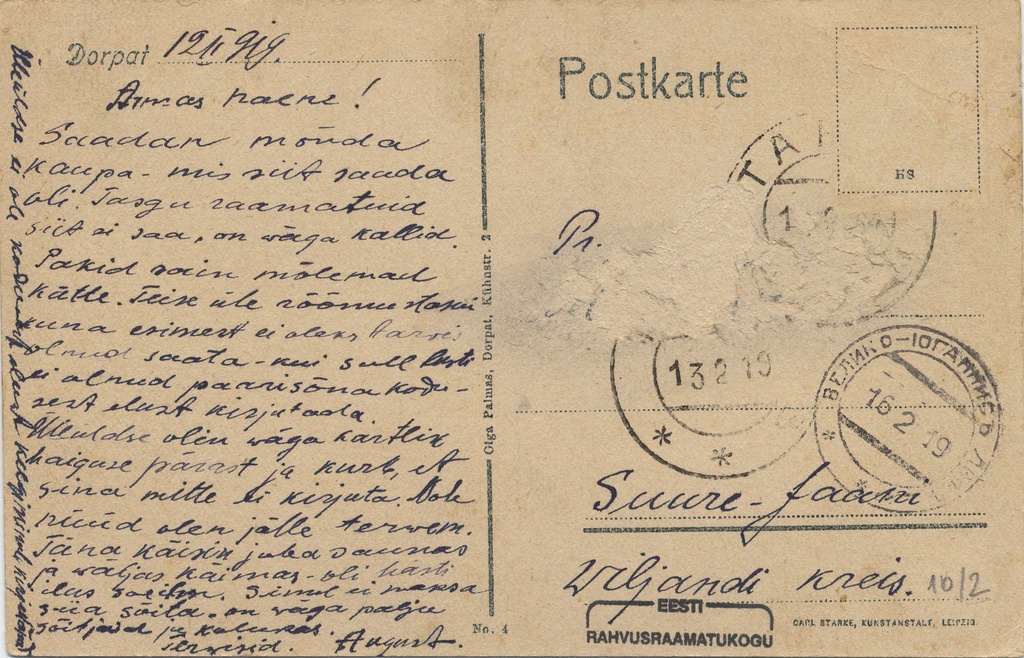 Dorpat 12 II 919.
Armas naene!
Saadan mõnda
kaupa - mis siit saada
oli. Tasgu raamatuid
siit ei saa, on wäga kallid.
Pakid sain mõlemad
kätte. Teise üle rõõmustasin
kuna esimest ei oleks tarvis
olnud saata - kui sull lusti
ei olnud paarisõna kodu-
sest elust kirjutada.
Ülleüldse olen wäga kärtlik
haiguse pärast ja kurb, et
sina mitte ei kirjuta. Nole
nüüd olen jälle terwem.
Täna käisin juba saunas
ja wäljas käimas - oli hästi
ilus soe ilm. Sinul ei maksa
siia sõita. on wäga palju
sõitjaid ja kulukas.
Terwisid. August.
Ülleüldse ei ole kodusest elust keegi minule kirjutanud
Olga Palmas, Dorpat, Kühnstr. 2
No. 4
Postkarte
KS
TA
13 2 19
Pr.
13 2 19
* *
ВЕЛИКО-ІОГАННИСЪ
16 2 19
Suure-Jaani
Wiljandi kreis.
10/2
EESTI
RAHVUSRAAMATUKOGU
CARL STARKE, KUNSTANSTALT, LEIPZIG.